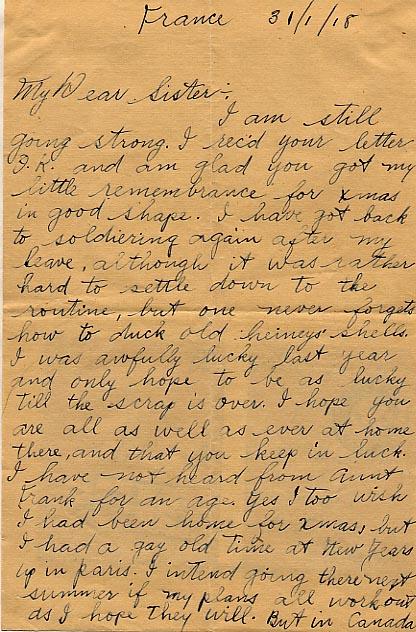 France 31/1/18
My Dear Sister:-
I am still
going strong. I rec'd your letter
O.K. and am glad you got my
little remembrance for xmas
in good shape. I have got back
to soldiering again after my
leave, although it was rather
hard to settle down to the
routine, but one never forgets
how to duck old heineys' shells.
I was awfully lucky last year
and only hope to be as lucky
till the scrap is over. I hope you
are all as well as ever at home
there, and that you keep in luck.
I have not heard from Aunt
Frank for an age. Yes I too wish
I had been home for xmas, but
I had a gay old time at New Years
up in paris. I intend going there next
summer if my plans all work out
as I hope they will. But in Canada